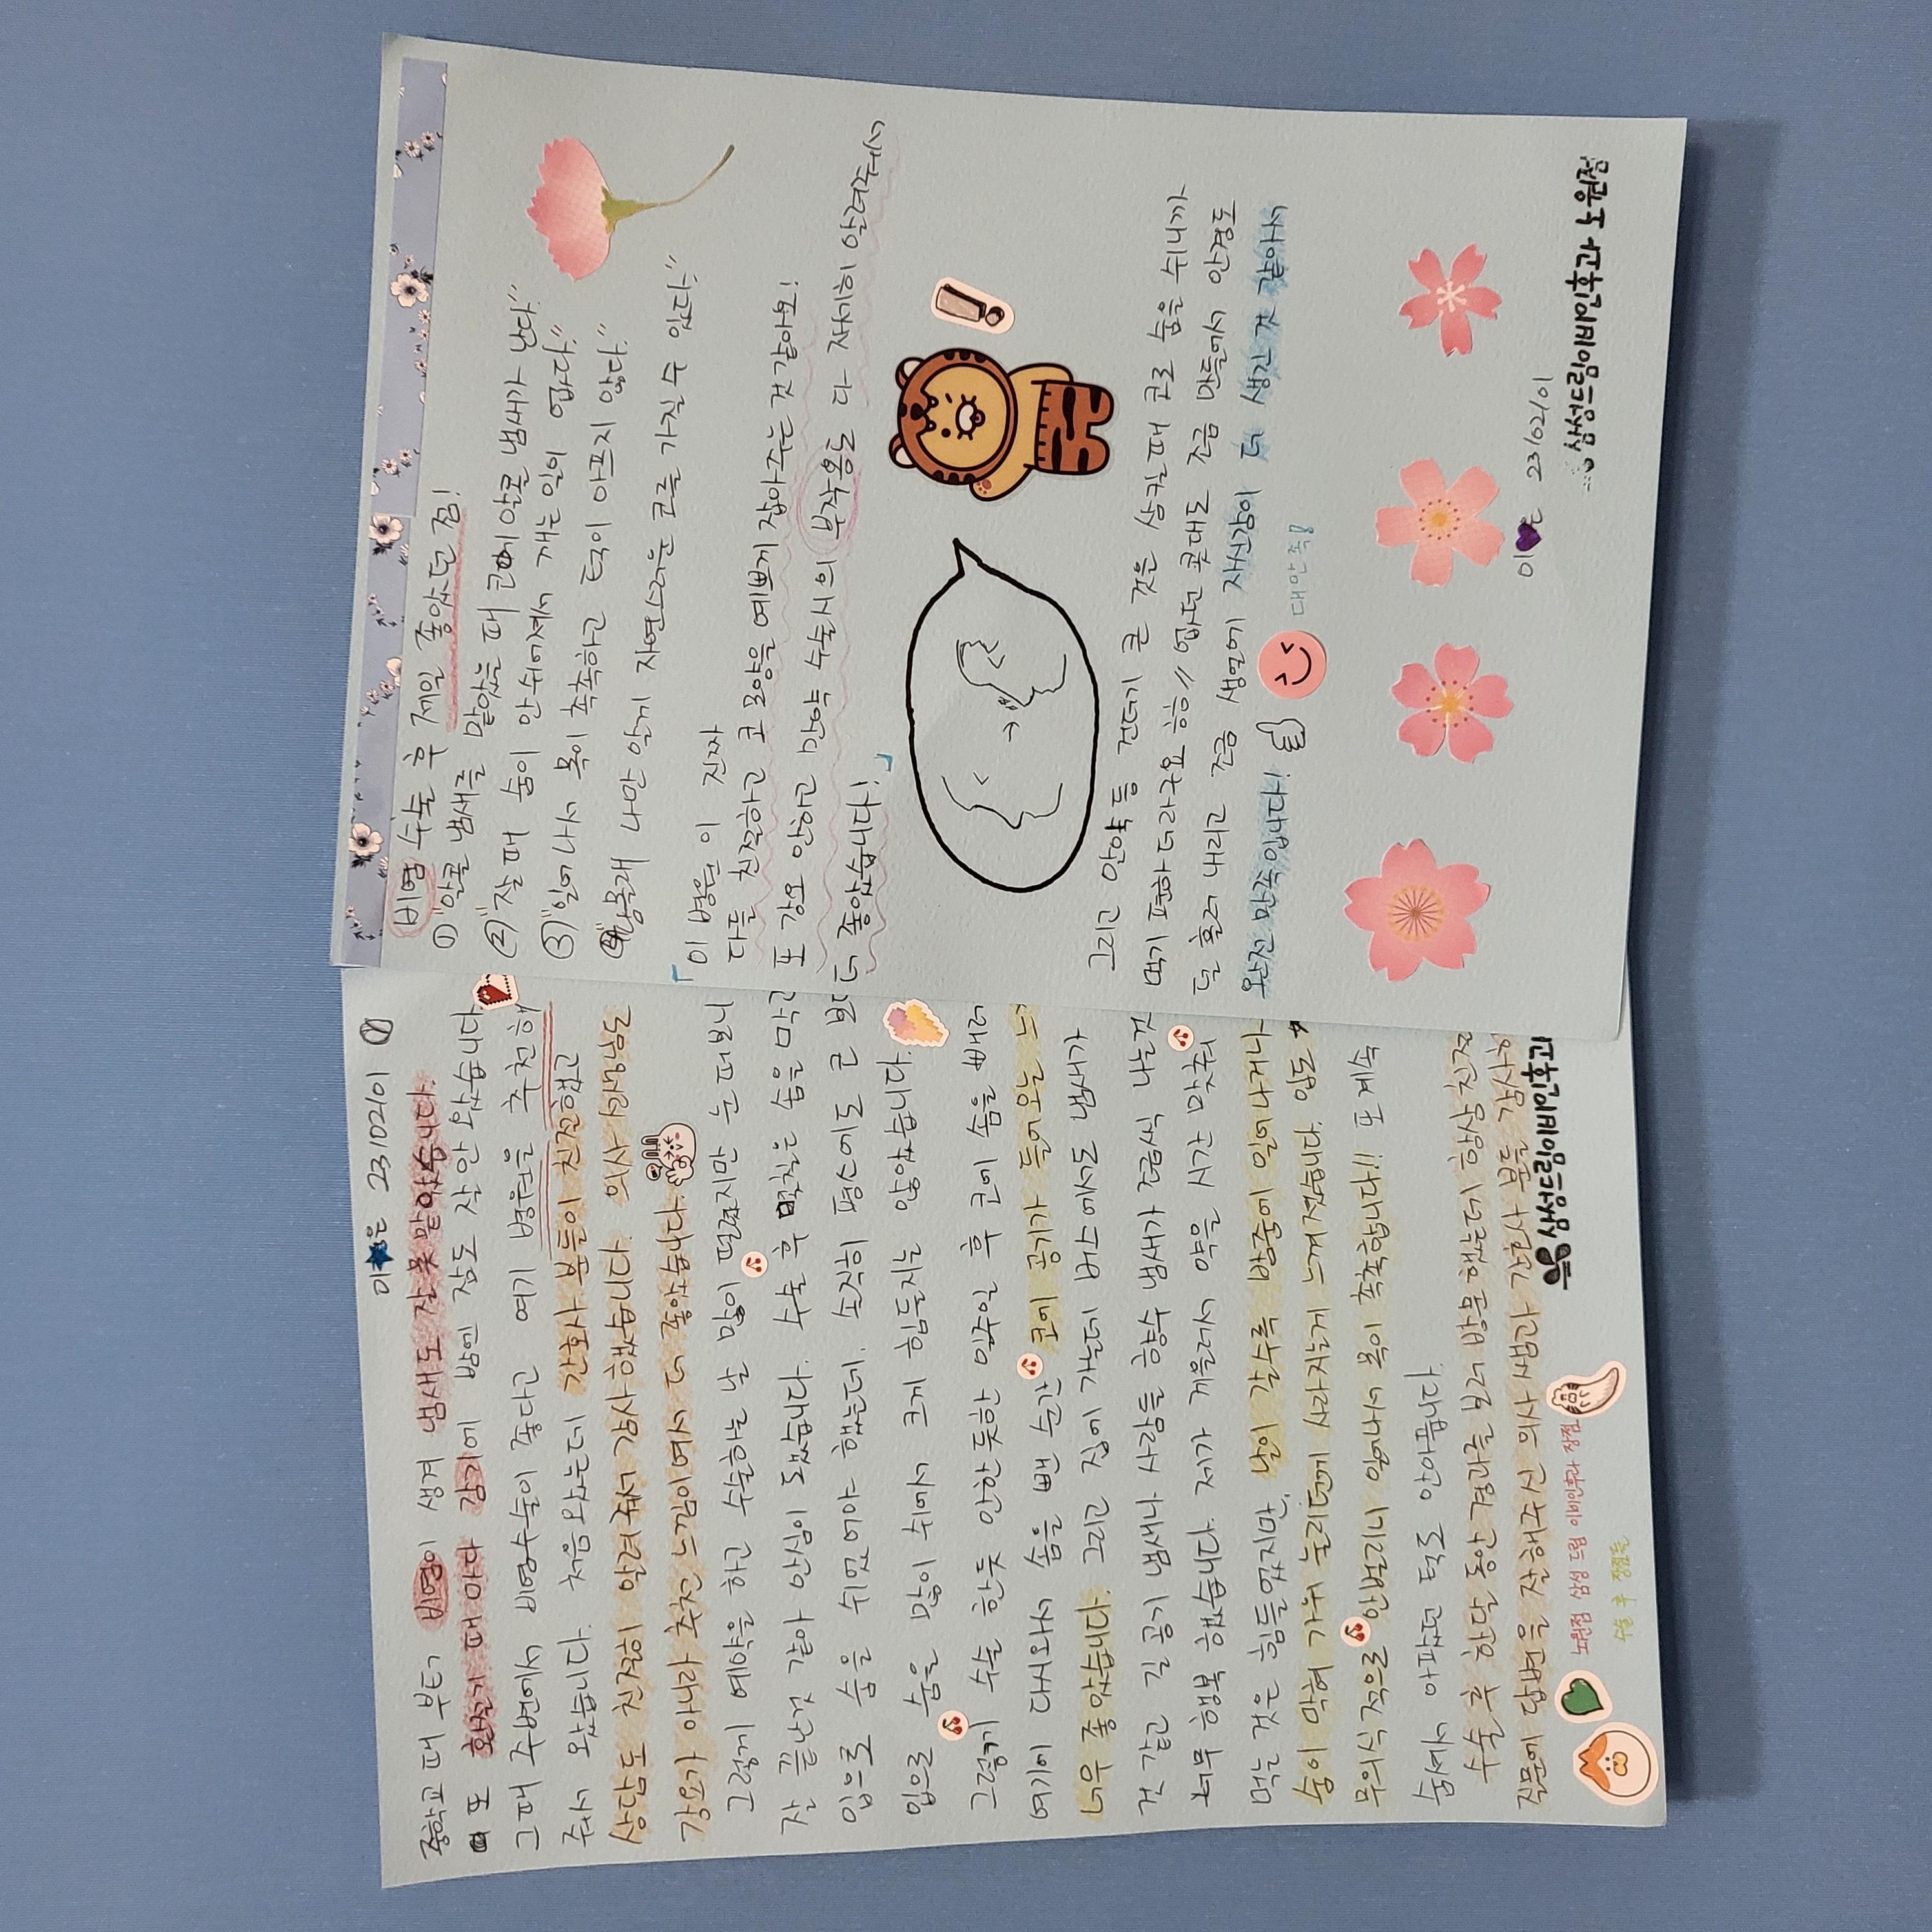 이 은 23/02/01 ①
중학교 때 부터 비염이 생겨 냄새도 잘 못 맡았습니다.
또 환절기 때 마다 감기에 밤엔 잠도 작 안 왔습니다
그때 주변에서 비염수술이 좋다고 여기 병원을 추천해
줘서 왔습니다. 처음 왔는데 간호사 분들이 친절했고
상담도 친절히 알려줘서 감사했습니다. 의사 선생님도
강요가 아니라 추천 느낌이여서 더 좋았습니다.
그렇게 예약을 하고 수술하는 날 많이 떨렸지만 눈 떠보니
잘 끝난것 같아 안심이 됐습니다. 수술 후 몇칠은 솜을 막고
입으로 숨을 쉬었어야 했는데. 솔직히 평소에도 큰
입으로 숨을 많이 쉬어서 크게 힘들지는 않았습니다.
그렇게 수술 한듯 안한듯한 일주일 후 코에 솜을 빼러
여기에 다시와서 솜을 뺀 순간 코에 공기가 들어오는
너무 좋았습니다. 그리고 집에 가는데 버스에서도 냄새가
건 같고 길 공기 냄새나 사람들 향수 냄새가 조금씩 나는것
너무 행복 했습니다. 제가 게을러서 약을 시간 맞춰
먹는 것은 힘들었지만, 날이 갈수록 밤중에 일어나거나
숨이 막혀 가위 눌리던게 사라지는게 느껴졌습니다. 입도
무의식적으로 안벌리니 일어나서 목이 촉촉합니다!! 또 계속
숨셔서 아팠던 턱도 안아픕니다.
수술 후 한달 동안 경과를 보러 방문했었는데 항상 친절
질문에 답변을 잘해주신 의사쌤과
고훈이비인후과
노원점 삼성드림 이비인후과 장점
수술 후 장점들
비염 수술 후 제일 좋았던 점!
① "알콜 냄새를 맡았을 때 코에 알콜 냄새가 난다."
② "잘 때 숨이 안 쉬어져서 깨는 일이 없다."
③ "일어나서 목이 촉촉하고 턱이 아프지 않다."
④ "남몰래 나만 알게 자연스러운 코를 가질 수 있다."
「이 병원이 진짜
다들 친절하고 코 모양을 예쁘게 잡아주는 것 같아요!
또 강요 안하고 만약 수술시의 부작용도 다 자세히 알려주셔서
더 좋았습니다!」
그리고 안약독들 건데기 큰 것은 삼킬때 코로 숨을 쉬니까
먹기 편하더라구요 흠흠// 없던 콧대도 조금 만들어서 안경도
덜 흘러 내리고 조금 생얼에 자신감이 더 생긴 것 같아서
완전 만족입니다! 대만족!
이 은 23/02/01
삼성드림이비인후과 노원점